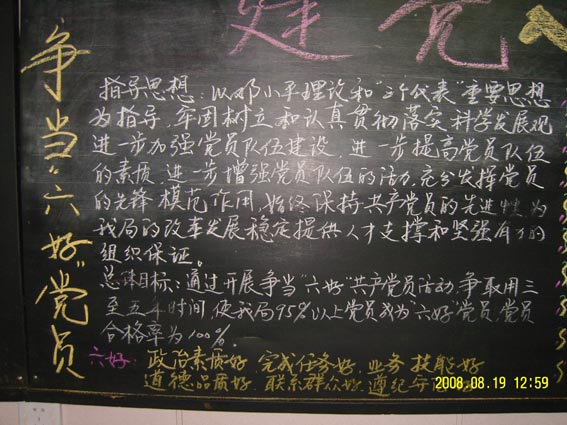 建党
争当“六好”党员
指导思想：以邓小平理论和“三个代表”重要思想
为指导，牢固树立和认真贯彻落实科学发展观
进一步加强党员队伍建设，进一步提高党员队伍
的素质，进一步增强党员队伍的活力，充分发挥党员
的先锋模范作用，始终保持共产党员的先进性，为
我局的改革发展稳定提供人才支撑和坚强有力的
组织保证。
总体目标：通过开展争当“六好”共产党员活动，争取用三
至五年时间，使我局95%以上党员成为“六好”党员，党员
合格率为100%。
六好：政治素质好，完成任务好，业务技能好
道德品质好，联系群众好，遵纪守
2008.08.19 12:59